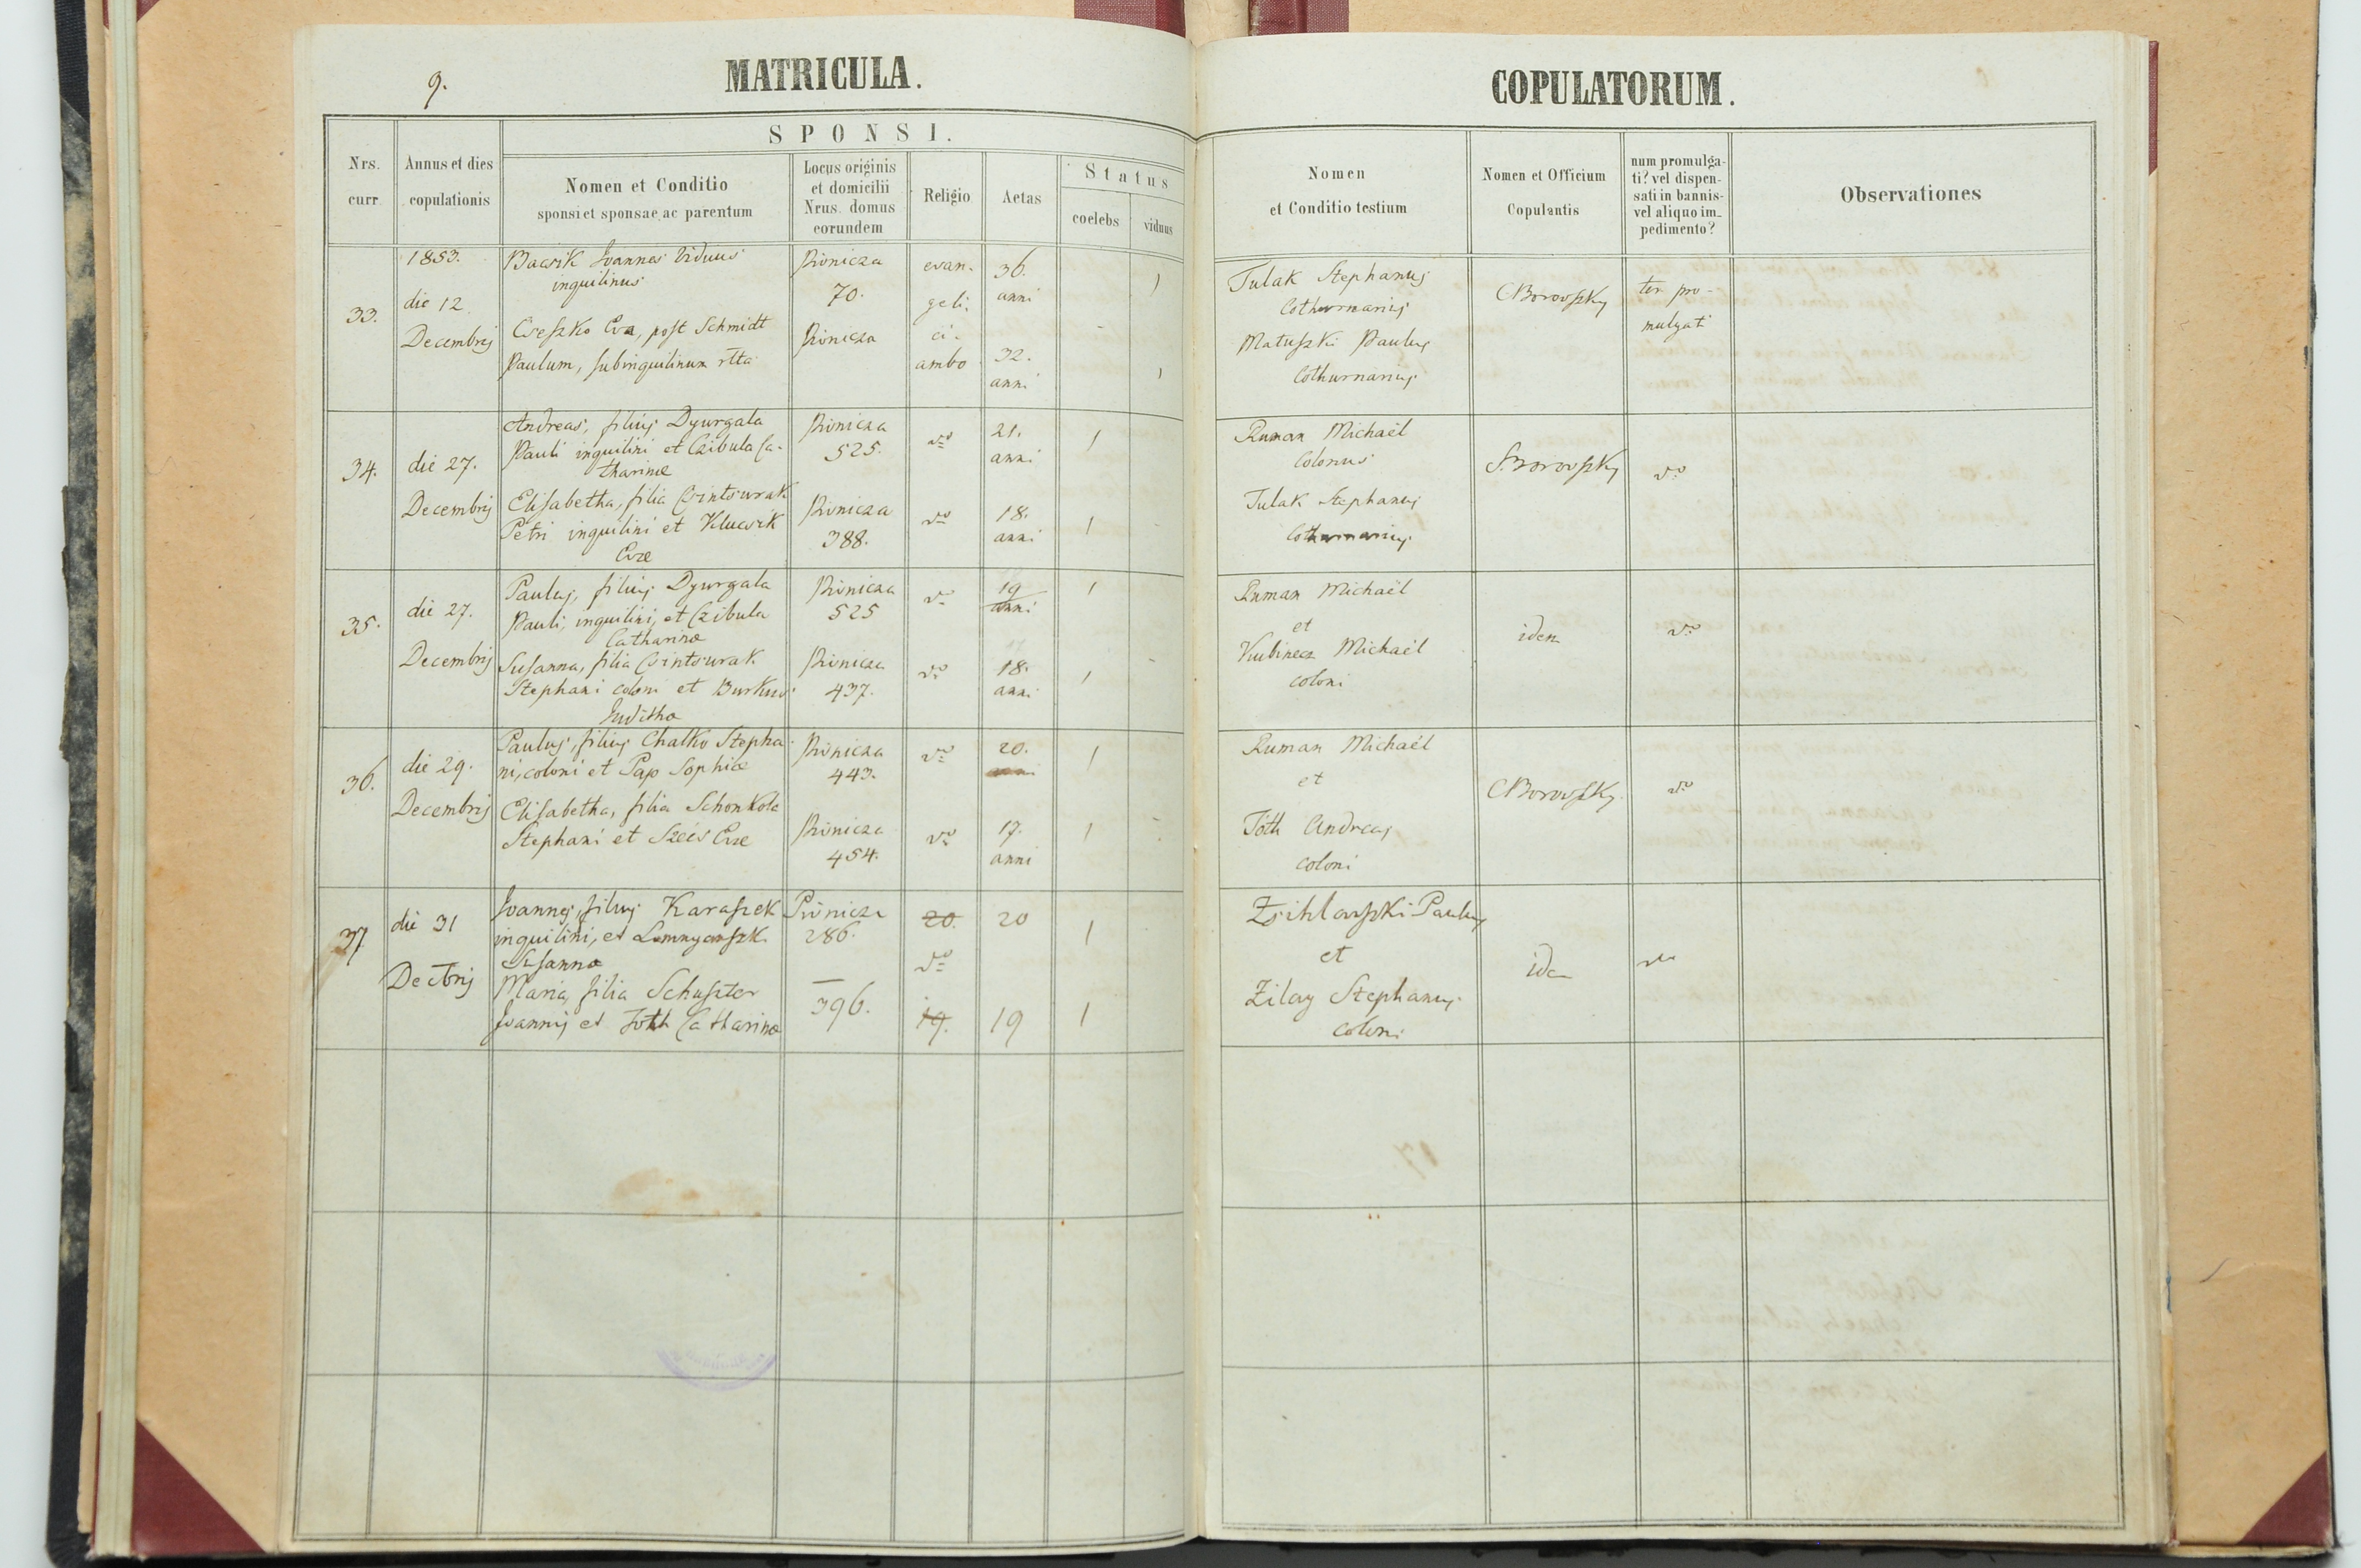 9.
MATRICULA.
COPULATORUM.
SPONSI.
Nrs. curr
Annus et dies copulationis
Nomen et Conditio
sponsi et sponsae, ac parentum
Locus originis
et domicilii
Nrus. domus
eorundem
Religio
Aetas
Status
coelebs
viduus
Nomen
et Conditio testium
Nomen et Officium
Copulantis
num promulga-
ti? vel dispen-
sati in bannis-
vel aliquo im-
pedimento?
Observationes
33.
1853.
die 12.
Decembris
Bacsik Joannes viduus
inquilinus
Cseszko Eva, post Schmidt
Paulum, subinquilinum rtta
Pivnicza
70.
Pivnicza
evan-
geli-
ci.
ambo
36.
anni
32.
anni
1
1
Tulak Stephanus
Cothurnarius
Matuszki Paulus
Cothurnarius
CBorovszky
ter pro-
mulgati
34.
die 27.
Decembris
Andreas, filius Dyurgala
Pauli inquilini et Czibula Ca-
tharinæ
Elisabetha, filia Csintsurak
Petri inquilini et Klucsik
Evæ
Pivnicza
525.
Pivnicza
388.
do
do
21.
anni
18.
anni
1
1
Ruman Michaël
Colonus
Tulak Stephanus
Cothurnarius
CBorovszky
do
35.
die 27.
Decembris
Paulus, filius Dyurgala
Pauli, inquilini, et Czibula
Catharinæ
Susanna, filia Csintsurak
Stephani coloni et Burkus
Judithæ
Pivnicza
525
Pivnicza
437.
do
do
19
anni
18.
anni
1
1
Ruman Michaël
et
Kubinecz Michaël
coloni
idem
do
36.
die 29.
Decembris
Paulus, filius Chalko Stepha-
ni, coloni et Pap Sophiæ
Elisabetha, filia Schonkola
Stephani et Szűcs Evæ
Pivnicza
443.
Pivnicza
454.
do
do
20.
anni
17.
anni
1
1
Ruman Michaël
et
Tóth Andreas
coloni
CBorovszky
do
37
die 31
Dectbris
Joannes, filius Karaszek
inquilini, et
Susannæ
Maria, filia Schuszter
Joannis et Toth Catharinæ
Pivnicza
286.
—
396.
20.
do
19.
20
19
1
1
Paulus
et
Zilay Stephanus
coloni
idem
do